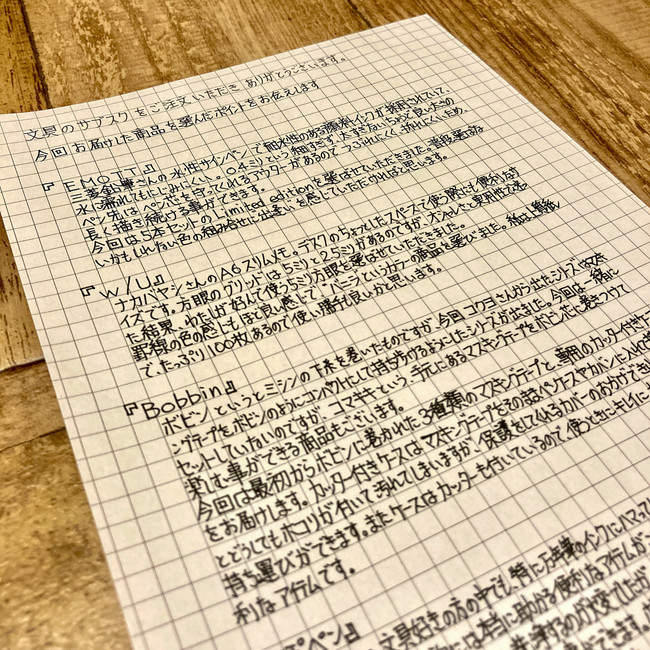 文具のサブスクをご注文いただきありがとうございます。
今回お届けした商品を選んだポイントをお伝えします
『EMOTT』
三菱鉛筆さんの水性サインペンで耐水性のある顔料インクが採用されていて、
水に濡れてもにじみにくい。0.4ミリという細すぎず、太すぎないちょうど良い太さの
ペン先は、ペン芯を守ってくれるアウターがあるのでつぶれにくく、折れにくいため、
長く描き続ける事ができます。
今回は5本セットのLimited editionを選ばせていただきました。普段選ばな
いかもしれない色の組み合わせに出逢いを感じていただければと思います。
『W/U』
ナカバヤシさんのA6スリムメモ。デスクのちょっとしたスペースで使う際にも便利なサ
イズです。方眼のグリッドは5ミリと2.5ミリがあるのですが、オシャレさと実用性で
た結果、わたしが好んで使う5ミリ方眼を選ばせていただきました。
罫線の色の感じもほど良い感じで、バニラというカラーの商品を選びました。
で、たっぷり100枚あるので使い勝手も良いかと思います。
『Bobbin』
ボビンというとミシンの下糸を巻いたものですが、今回コクヨさんから出たシリーズはマスキ
ングテープをボビンのようにコンパクトにして持ち歩けるようにしたシリーズが出ました。今回は一緒に
セットしていないのですが、コマキキという、手元にあるマスキングテープをボビンに巻きつけて
楽しむ事ができる商品もございます。
今回は最初からボビンに巻かれた3種類のマスキングテープと、専用のカッター付きケース
をお届けします。カッター付きケースはマスキングテープをそのままペンケースやカバンに入れておく
とどうしてもホコリが付いて汚れてしまいますが、保護をしてくれるカバーのおかげでキレイ
持ち運びができます。またケースはカッターも付いているので、使うときにキレイに
利なアイテムです。
ペン』
文具好きの方の中でも、特に万年筆のインクにハマって
には本当に助かる便利なアイテムが
洗浄するのが大変でしたが